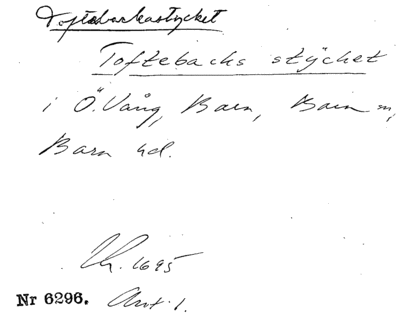 Toftebackastycket
Toftebacks stÿcket
i Ö. Vång, Bara, Bara sn,
Bara hd.
Lk. 1695
Nr 6296. Ant. 1.